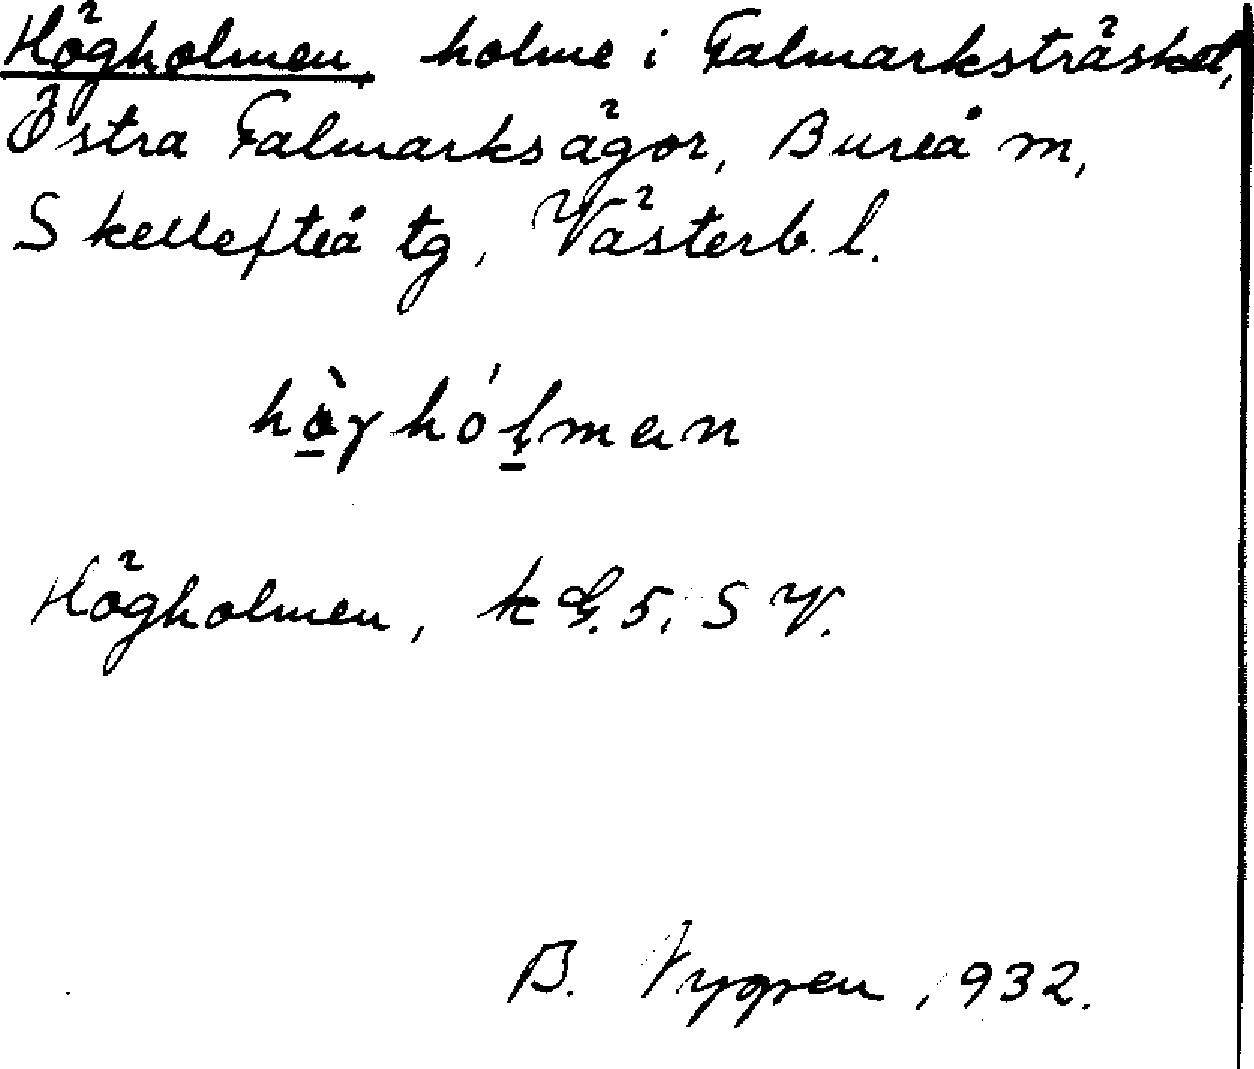 Högholmen, holme i Falmarksträsket,
Östra Falmarksägor, Bureå m,
Skellefteå tg, Västerb. l.
Högholmen, k G. 5. S V.
B. Nygren 1932.